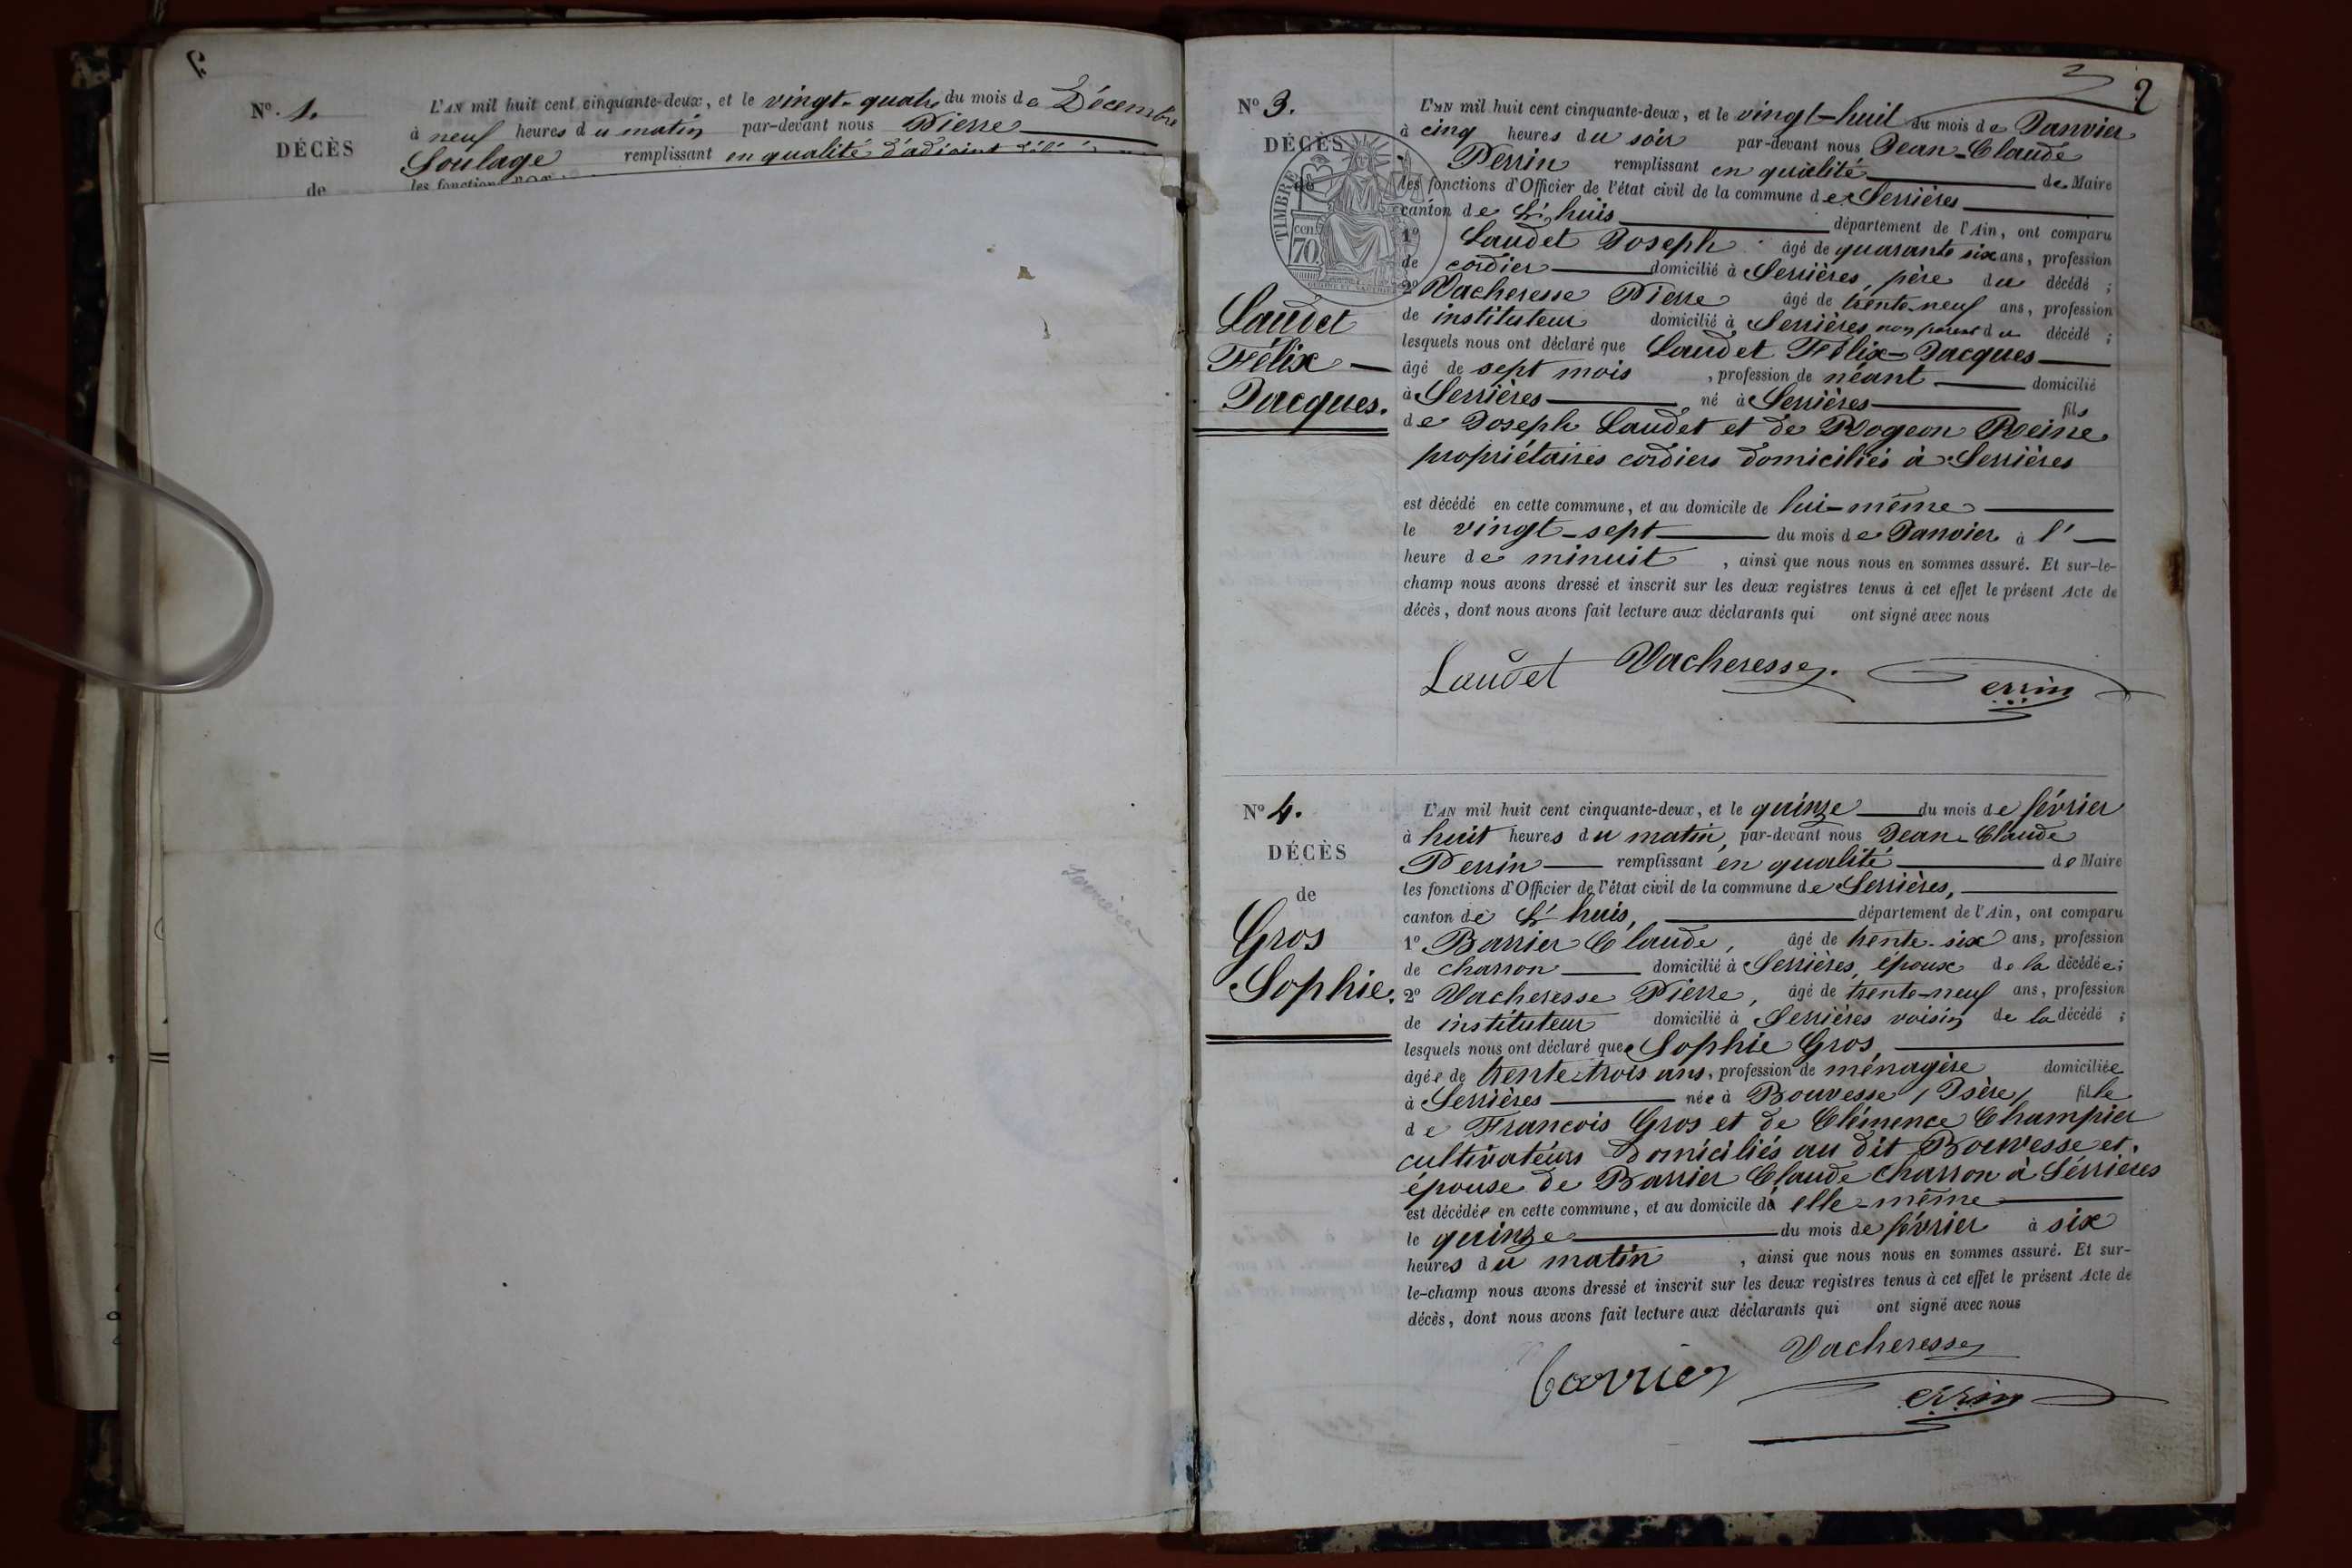 Nº 1.
DÉCÈS
de
L'AN mil huit cent cinquante-deux, et le vingt-quatre du mois de Décembre
à neuf heures du matin par-devant nous Pierre
Soulage remplissant en qualité d'adjoint
les fonctions
2
Nº 3.
DÉCÈS
de
TIMBRE
cen.
70.
Laudet
Félix —
Jacques.
L'AN mil huit cent cinquante-deux, et le vingt-huit du mois de Janvier
à cinq heures du soir par-devant nous Jean-Claude
Perrin remplissant en qualité de Maire
les fonctions d'Officier de l'état civil de la commune de Serrières
canton de L'huis département de l'Ain, ont comparu
1º Laudet Joseph âgé de quarante six ans, profession
de cordier domicilié à Serrières, père du décédé ;
2º Vacheresse Pierre âgé de trente-neuf ans, profession
de instituteur domicilié à Serrières non parent du décédé ;
lesquels nous ont déclaré que Laudet Félix-Jacques
âgé de sept mois , profession de néant domicilié
à Serrières né à Serrières fils
de Joseph Laudet et de Rogeon Reine
propriétaires cordiers domiciliés à Serrières
est décédé en cette commune, et au domicile de lui-même
le vingt-sept du mois de Janvier à l'
heure de minuit , ainsi que nous nous en sommes assuré. Et sur-le-
champ nous avons dressé et inscrit sur les deux registres tenus à cet effet le présent Acte de
décès, dont nous avons fait lecture aux déclarants qui ont signé avec nous
Laudet Vacheresse. Perrin
Nº 4.
DÉCÈS
de
Gros
Sophie.
L'AN mil huit cent cinquante-deux, et le quinze du mois de février
à huit heures du matin, par-devant nous Jean-Claude
Perrin remplissant en qualité de Maire
les fonctions d'Officier de l'état civil de la commune de Serrières,
canton de L'huis, département de l'Ain, ont comparu
1º Barrier Claude, âgé de trente-six ans, profession
de charron domicilié à Serrières, époux de la décédée ;
2º Vacheresse Pierre, âgé de trente-neuf ans, profession
de instituteur domicilié à Serrières voisin de la décédé ;
lesquels nous ont déclaré que Sophie Gros,
âgée de trente-trois ans, profession de ménagère domiciliée
à Serrières née à Bouvesse (Isère) fille
de Francois Gros et de Clémence Champier
cultivateurs domiciliés au dit Bouvesse et
épouse de Barrier Claude charron à Serrières
est décédée en cette commune, et au domicile d'elle-même
le quinze du mois de février à six
heures du matin , ainsi que nous nous en sommes assuré. Et sur-
le-champ nous avons dressé et inscrit sur les deux registres tenus à cet effet le présent Acte de
décès, dont nous avons fait lecture aux déclarants qui ont signé avec nous
barrier Vacheresse
Perrin